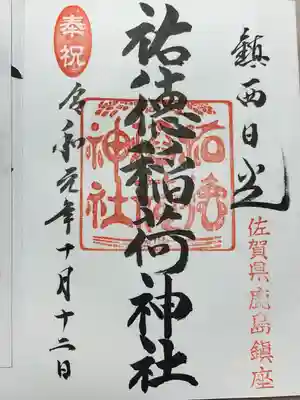 鎮西日光
佐賀県鹿島鎮座
祐徳稲荷神社
奉祝
令和元年十月十二日